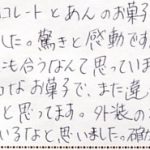 コレートとあんのお菓子
した。驚きと感動です
にも合うなんて思っていま
なお菓子で、また違
と思ってます。外装の
いるなと思いました。確か